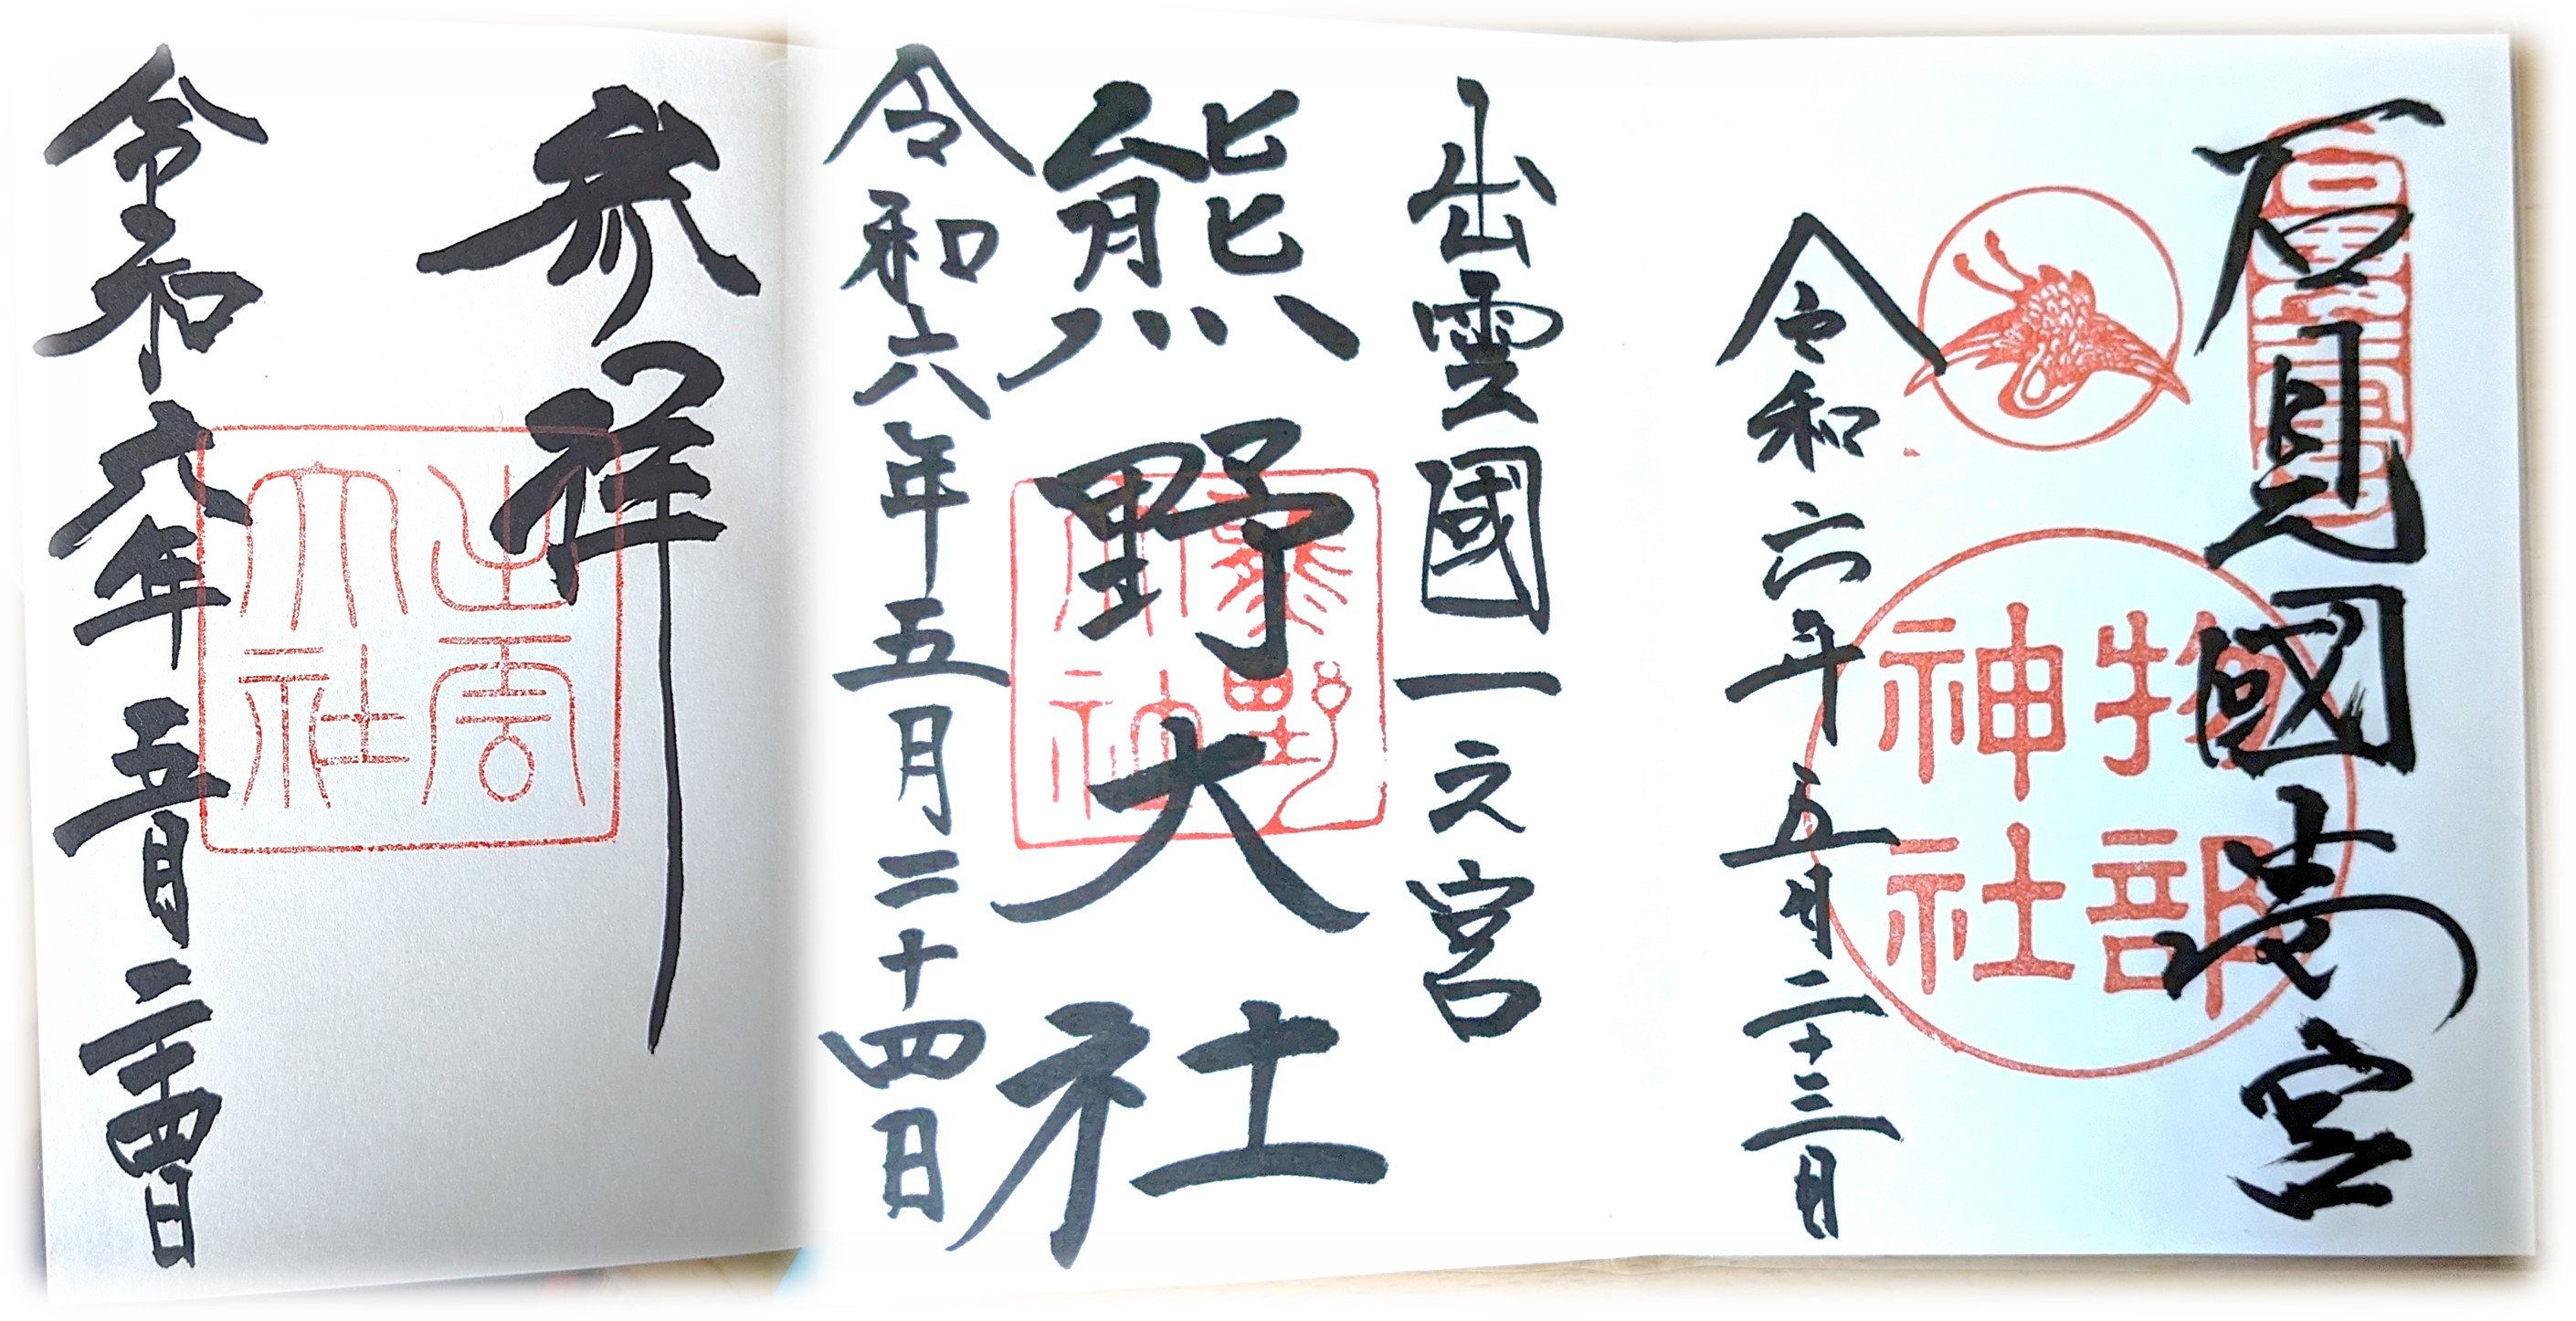 石見國壱宮
物部
神社
令和六年五月二十三日
出雲國一之宮
熊野大社
熊野
大社
令和六年五月二十四日
参拝
出雲
大社
令和六年五月二十四日